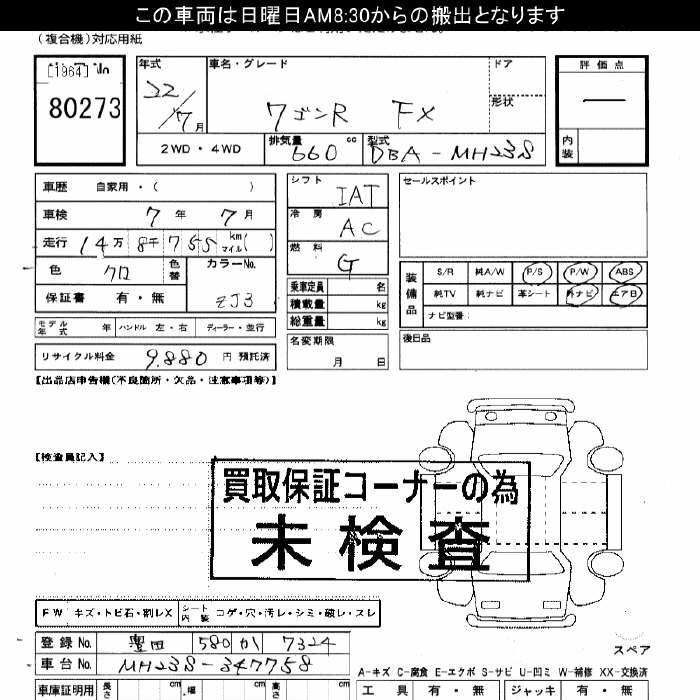 この車両は日曜日AM8:30からの搬出となります
(複合機)対応用紙
[1964]
80273
年式 22/7月
車名・グレード ワゴンR FX
ドア
形状
評価点 —
内装
2WD・4WD
排気量 660 cc
型式 DBA-MH23S
車歴 自家用・( )
車検 7年 7月
走行 14万8千755 km マイル ( )
色 クロ 色替
カラーNo. ZJ3
保証書 有・無
シフト IAT
冷房 AC
燃料 G
乗車定員 名
積載量 kg
総重量 kg
セールスポイント
装備品 S/R 純A/W P/S P/W ABS
純TV 純ナビ 革シート 外ナビ エアB
ナビ型番:
モデル年式 年 ハンドル 左・右 ディーラー・並行
名変期限 月 日
後日品
リサイクル料金 9,880 円 預託済
【出品店申告欄(不良箇所・欠品・注意事項等)】
【検査員記入】
買取保証コーナーの為
未検査
FW キズ・トビ石・割レX
シート内装 コゲ・穴・汚レ・シミ・破レ・スレ
登録No. 豊田 580 か 7324
車台No. MH23S-347758
スペア
A-キズ C-腐食 E-エクボ S-サビ U-凹ミ W-補修 XX-交換済
車庫証明用 長さ cm 幅 cm 高さ cm
工具 有・無 ジャッキ 有・無